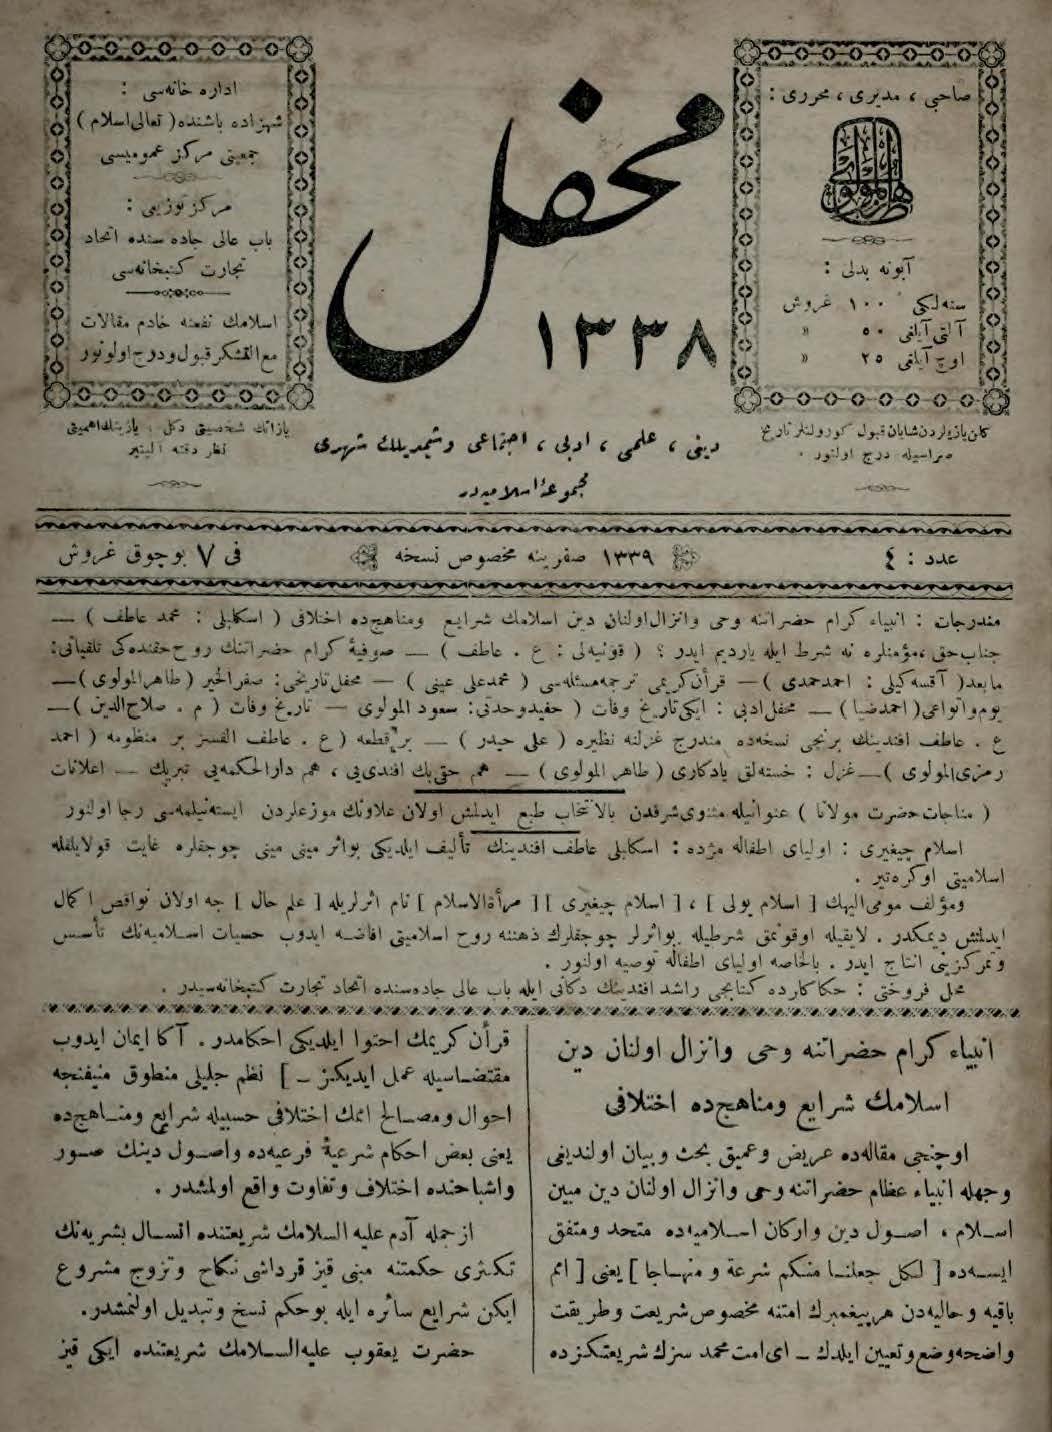 صاحبی ، مدیری ، محرری :
طاهر المولوی
آبونه بدلی :
سنه‌لکی ۱۰۰ غروش
آلتی آیلغی ۵۰ »
اوچ آیلغی ۲۵ »
محفل
۱۳۳۸
اداره خانه‌سی :
شهزاده باشنده ( تعالی اسلام )
جمعیتی مرکز عمومیسی
مرکز توزیعی :
باب عالی جاده سنده اتحاد
تجارت کتبخانه‌سی
اسلامك نفعنه خادم مقالات
مع التشکر قبول و درج اولونور
کلن یازیلردن شایان قبول کورولنلر تاریخ
صراسیله درج اولنور .
دینی ، علمی ، ادبی ، اجتماعی و شیمدیلك شهری
مجموعهٔ اسلامیه‌در
یازانك شخصیتی دکل ، یازینك اهمیتی
نظر دقته آلینیر
عدد : ٤
۱۳۳۹ صفرینه مخصوص نسخه
فی ۷ بوچوق غروش
مندرجات : انبیاء کرام حضراتنه وحی وانزال اولنان دین اسلامك شرایع ومناهجده اختلافی ( اسکلبلی : محمد عاطف ) —
جناب حق ، مؤمنلره نه شرط ایله یاردیم ایدر ؟ ( قونیه‌لی : ع . عاطف ) — صوفیهٔ کرام حضراتنك روح حقنده‌کی تلقیاتی :
مابعد ( آقسه‌کیلی : احمد حمدی ) — قرآن کریمی ترجمه مسئله‌سی ( محمد علی عینی ) — محفل تاریخی : صفر الخیر ( طاهر المولوی ) —
یوم وانواعی ( احمد ضیا ) — محفل ادبی : ایکی تاریخ وفات ( حفید وحدتی : سعود المولوی — تاریخ وفات ( م . صلاح الدین ) —
ع . عاطف افندینك برنجی نسخه‌ده مندرج غزلنه نظیره ( علی حیدر ) — بر قطعه ( ع . عاطف الفسز بر منظومه ( احمد
رمزی المولوی ) — غزل : خسته‌لق یادکاری ( طاهر المولوی ) — هم حقی بك افندی‌یی ، هم دار الحکمه‌یی تبریك — اعلانات
( مناجات حضرت مولانا ) عنوانیله مثنوی شرفدن بالانتخاب طبع ایدلمش اولان علاوه‌نك موزعلردن ایسته‌نیلمه‌سی رجا اولنور
اسلام چیغیری : اولیای اطفاله مژده : اسکلبلی عاطف افندینك تألیف ایلدیکی بو اثر مینی مینی چوجقلره غایت قولایلقله
اسلامیتی اوکره‌تیر .
ومؤلف مومی الیهك [ اسلام یولی ] ، [ اسلام چیغیری ] [ مرآة الاسلام ] نام اثرلریله [ علم حال ] جه اولان نواقص اکمال
ایدلمش دیمکدر . لایقیله اوقوتمق شرطیله بو اثرلر چوجقلرك ذهننه روح اسلامیتی افاضه ایدوب حسیات اسلامیه‌نك تأسس
وتمرکزینی انتاج ایدر . بالخاصه اولیای اطفاله توصیه اولنور .
محل فروختی : حکاکلرده کتابجی راشد افندینك دکانی ایله باب عالی جاده سنده اتحاد تجارت کتبخانه‌سیدر .
انبیاء کرام حضراتنه وحی وانزال اولنان دین
اسلامك شرایع ومناهجده اختلافی
اوچنجی مقاله‌ده عریض وعمیق بحث وبیان اولندیغی
وجهله انبیاء عظام حضراتنه وحی وانزال اولنان دین مبین
اسلام ، اصول دین وارکان اسلامیه‌ده متحد ومتفق
ایسه‌ده [ لکل جعلنا منکم شرعة ومنهاجا ] یعنی [ امم
باقیه وحالیه‌دن هر پیغمبرك امتنه مخصوص شریعت وطریقت
واضحه وضع وتعیین ایلدك — ای امت محمد سزك شریعتکزده
قرآن کریمك احتوا ایلدیکی احکامدر . آکا ایمان ایدوب
مقتضاسیله عمل ایدیکز — ] نظم جلیلی منطوق منیفنجه
احوال ومصالح اممك اختلافی حسبیله شرایع ومناهجده
یعنی بعض احکام شرعیهٔ فرعیه‌ده واصول دینك صور
واشباحنده اختلاف وتفاوت واقع اولمشدر .
از جمله آدم علیه السلامك شریعتنده انسال بشریه‌نك
تکثری حکمتنه مبنی قیز قرداشی نکاح وتزوج مشروع
ایکن شرایع سائره ایله بو حکم نسخ وتبدیل اولنمشدر.
حضرت یعقوب علیه السلامك شریعتنده ایکی قیز